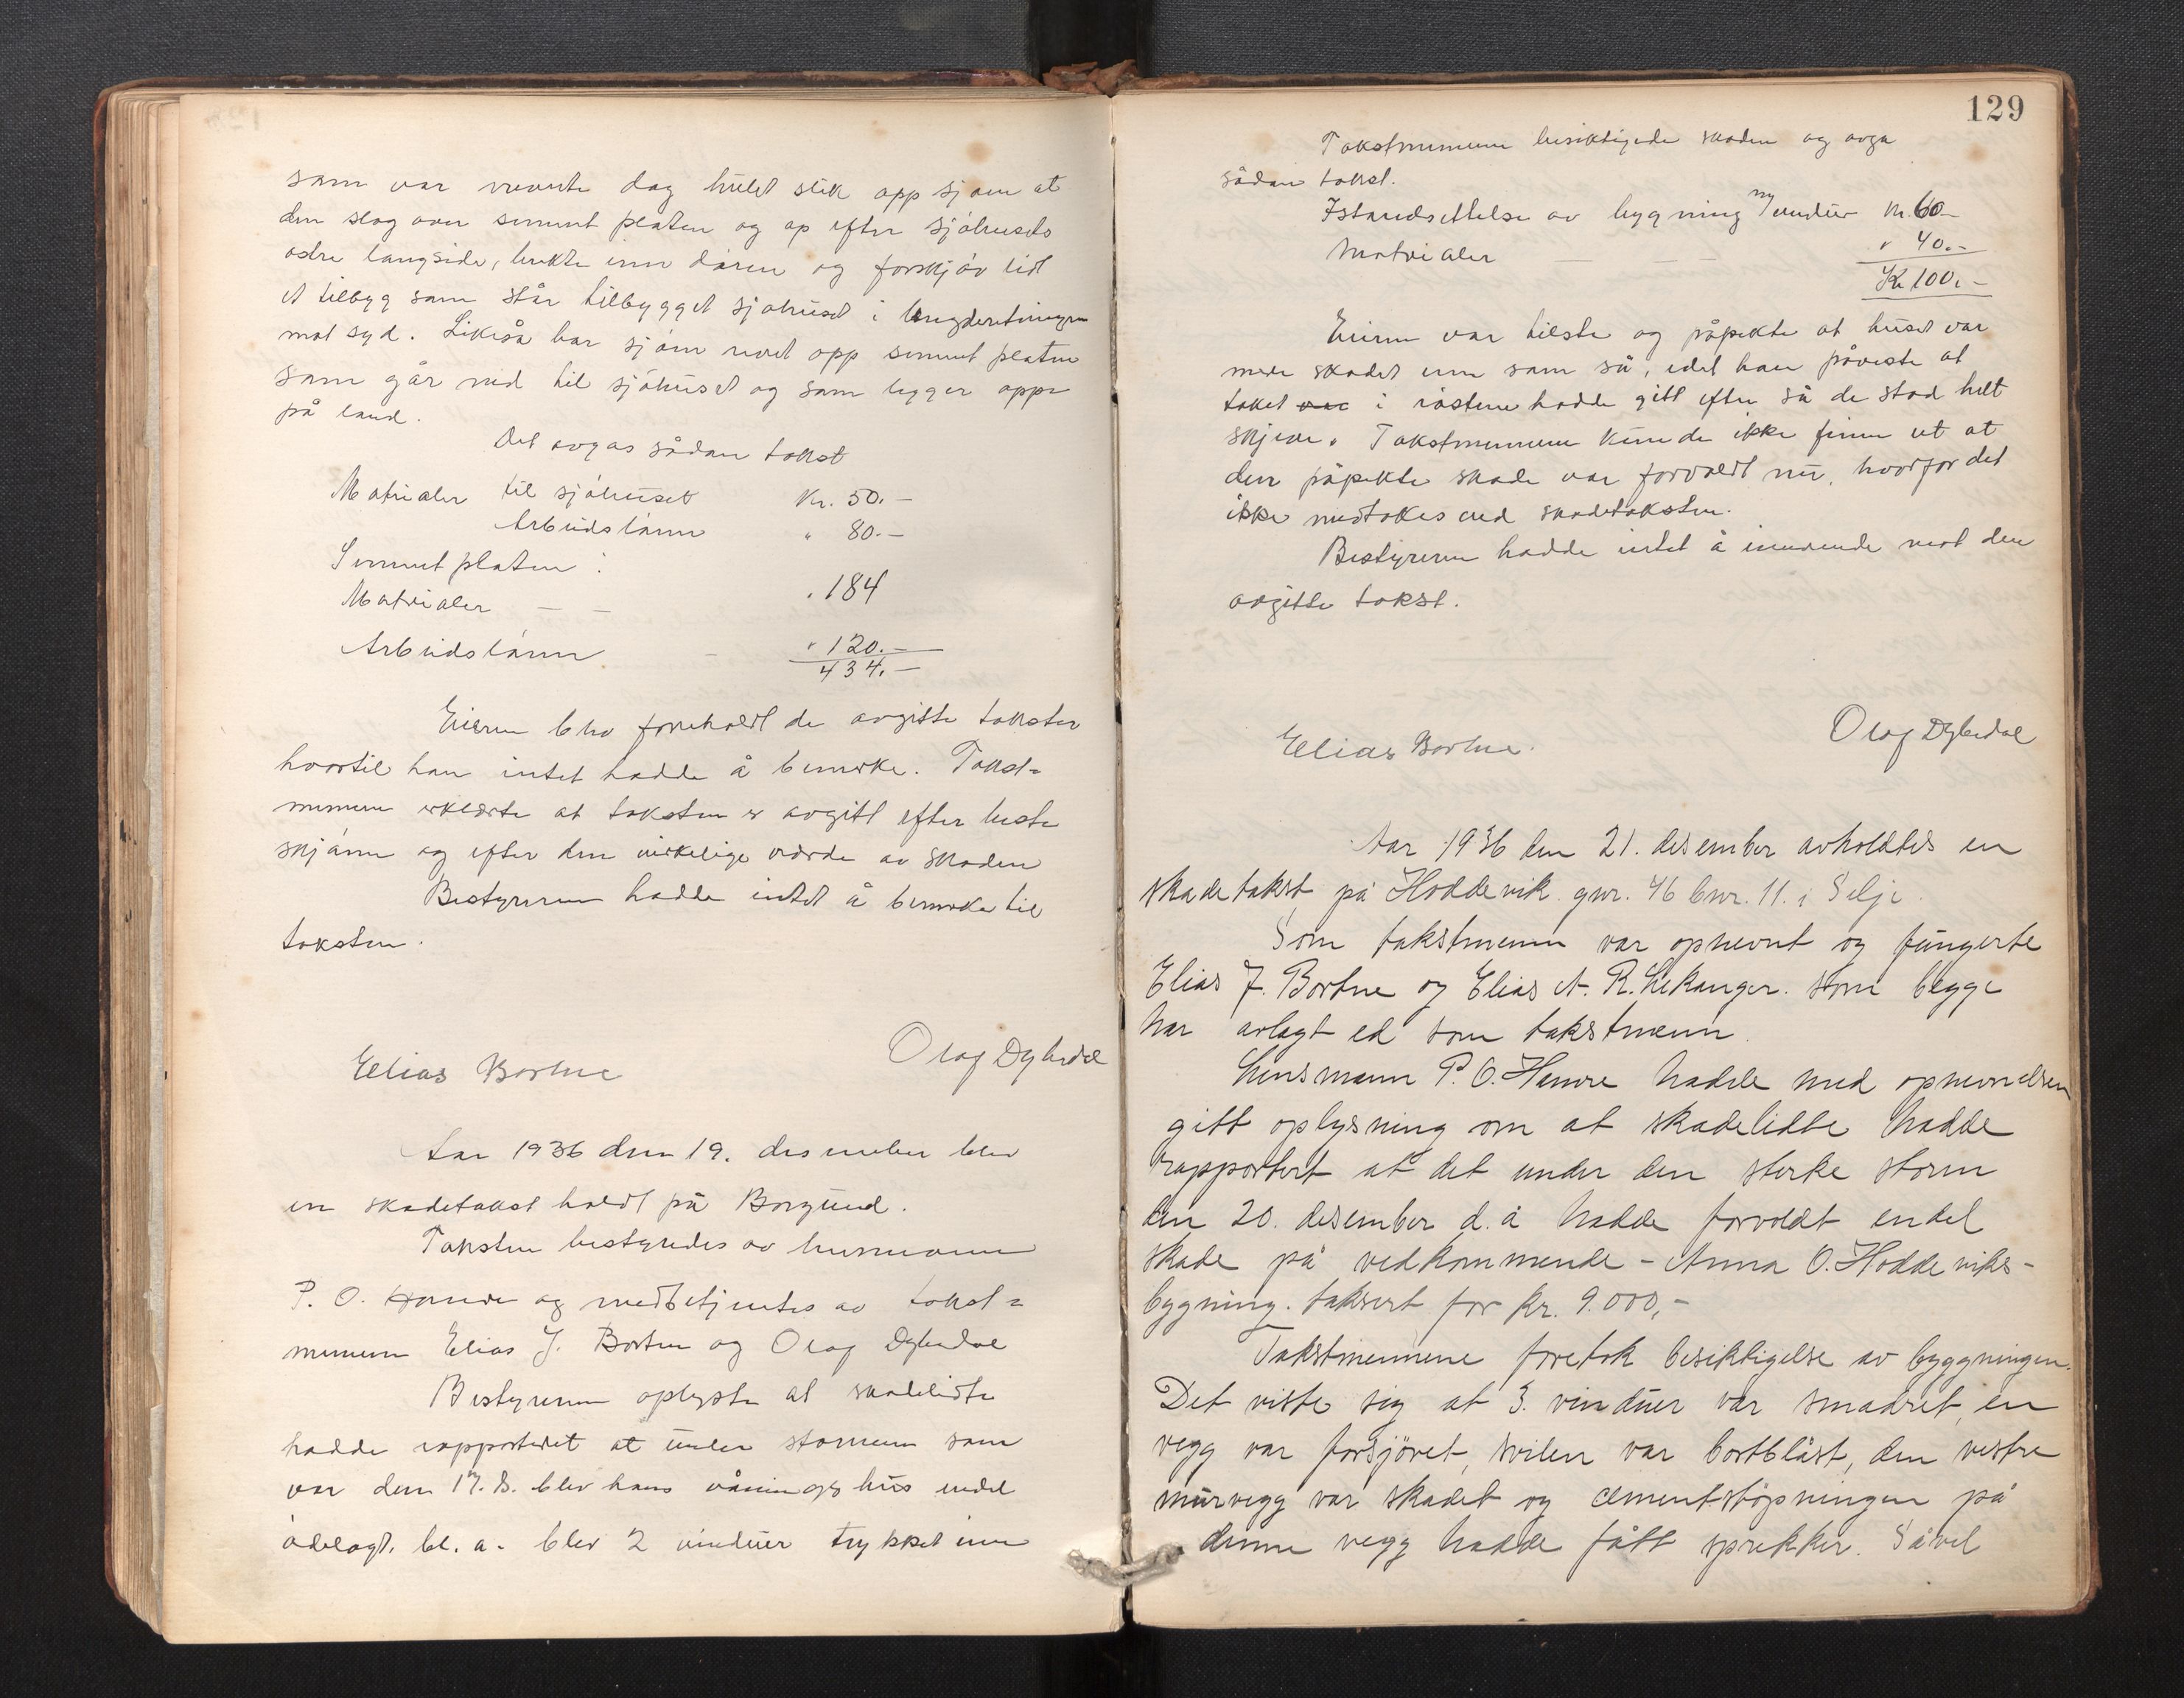 som var nevnte dag hulet slik opp sjøen at
den slog over sement platen og op efter sjøhusets
østre langside, brekte inn døren og forskjøv litt
et tilbygg som står tilbygget sjøhuset i lengderetningen
mot syd. Likeså har sjøen revet opp sement platen
som går ned til sjøhuset og som ligger oppe
på land.
Det avgas sådan takst
Matrialer til sjøhuset Kr. 50.-
Arbeidslønn " 80.-
Sement platen :
Matrialer — — " 184
Arbeidslønn - " 120.-
434.-
Eieren blev foreholdt de avgitte takster
hvortil han intet hadde å bemerke. Takst=
mennene erklærte at taksten er avgitt efter beste
skjønn og efter den virkelige værde av skaden
Bestyreren hadde intet å bemerke til
taksten.
Elias Bortne Olaf Dybedal
Aar 1936 den 19. desember blev
en skadetakst holdt på Borgund.
Taksten bestyredes av lensmann
P. O. Hamre og medbetjentes av takst=
mennene Elias J. Bortne og Olaf Dybedal
Bestyreren oplyste at skadelidte
hadde rapporteret at under stormen som
var den 17. ds. blev hans våningshus endel
ødelagt. bl. a. blev 2 vinduer trykket inn
129
Takstmennene besiktigede skaden og avga
sådan takst.
Istandsettelse av bygning ny vinduer Kr. 60-
Matrialer — — — " 40.-
Kr 100.-
Eieren var tilstede og påpekte at huset var
mere skadet enn som så, idet han påviste at
taket var i røstene hadde gitt efter så de stod helt
skjeve. Takstmennene kunde ikke finne ut at
den påpekte skade var forvoldt nu, hvorfor det
ikke medtokes ved skadetaksten.
Bestyreren hadde intet å innvende mot den
avgitte takst.
Elias Bortne. Olaf Dybedal
Aar 1936 den 21. desember avholdtes en
skadetakst på Hoddevik gnr. 46 bnr. 11. i Selje.
Som takstmenn var opnevnt og fungerte
Elias J. Bortne og Elias A. R. Lekanger. som begge
har avlagt ed som takstmenn.
Lensmann P. O. Hamre hadde med opnevnelsen
gitt oplysning om at skadelidte hadde
rapportert at det under den sterke storm
den 20. desember d. å hadde forvoldt endel
skade på vedkommende - Anna O. Hoddeviks-
bygning. taksert for kr. 9.000,-
Takstmennene foretok besiktigelse av byggningen.
Det viste sig at 3. vinduer var smadret, en
vegg var forsjøvet, svilen var bortblåst, den vestre
murvegg var skadet og cementstøpningen på
denne vegg hadde fått sprekker. Såvel